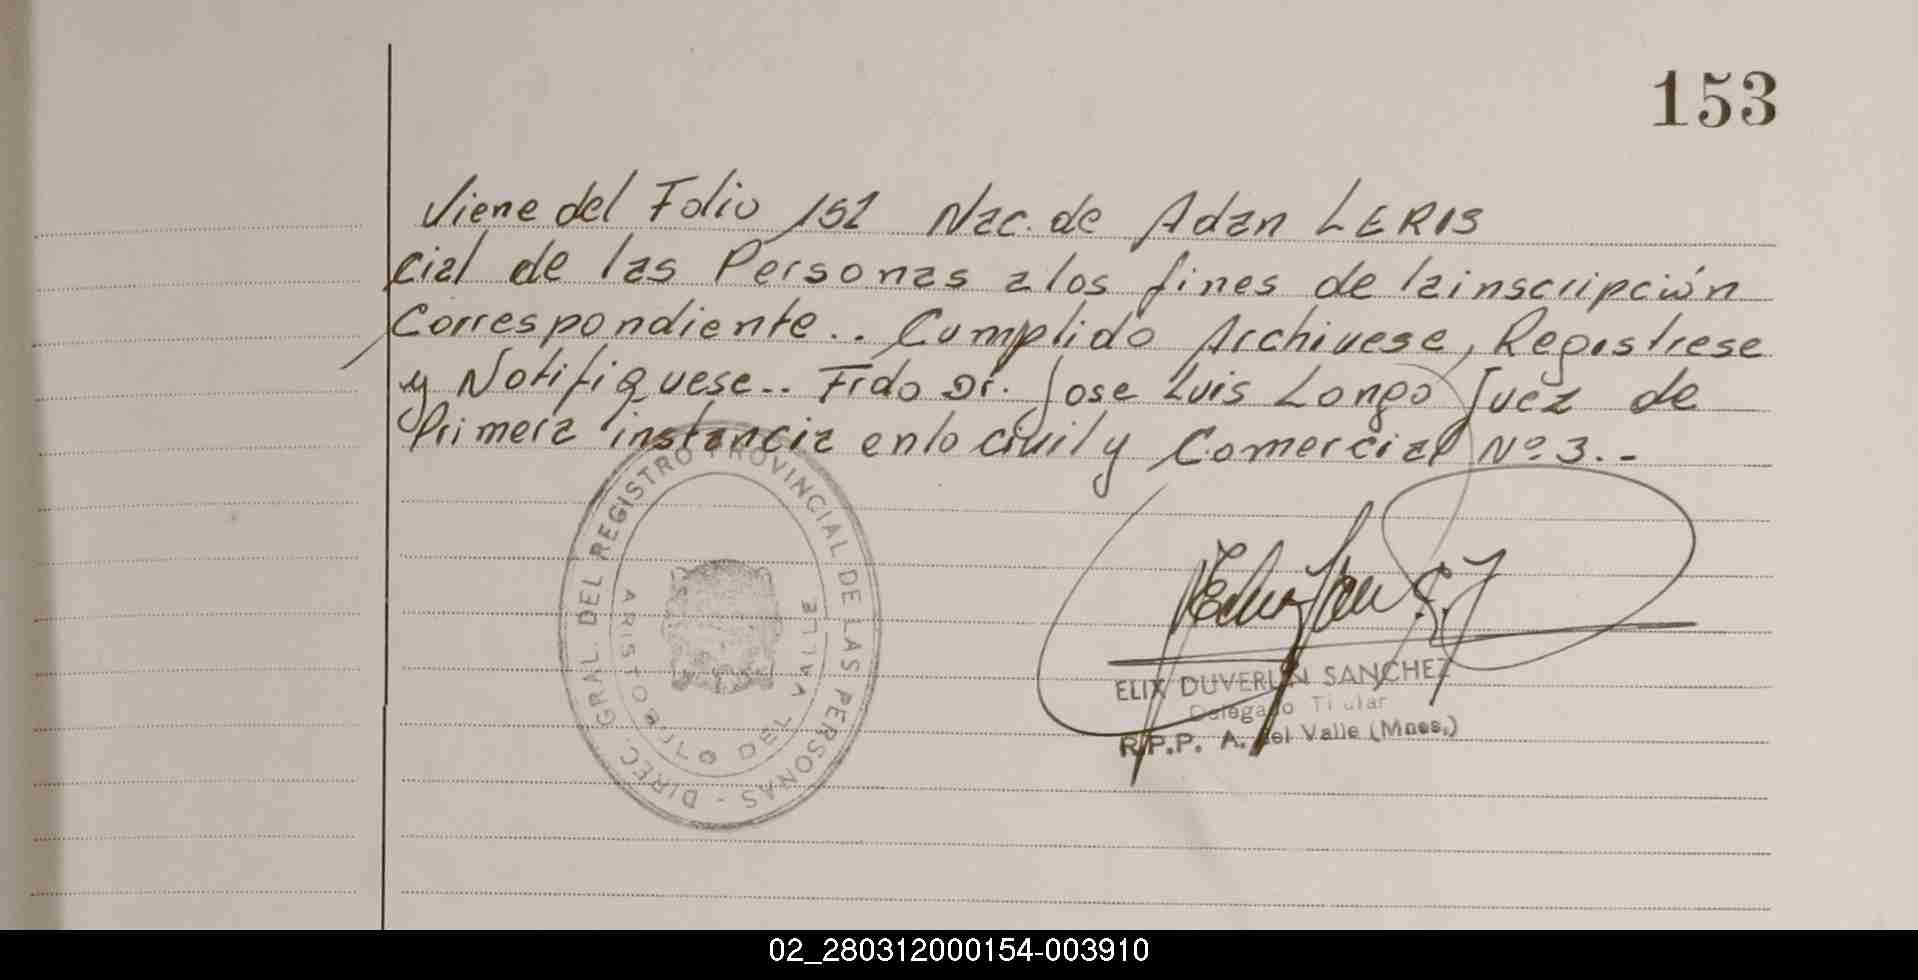 153
Viene del Folio 152 Nac. de Adan LERIS
cial de las Personas a los fines de la inscripción
Correspondiente.. Cumplido Archivese, Registrese
y Notifiquese.. Frdo Dr. Jose Luis Longo Juez de
Primera instancia en lo civil y Comercial Nº 3..-
DIREC. GRAL. DEL REGISTRO PROVINCIAL DE LAS PERSONAS -
ARISTOBULO DEL VALLE
ELIX DUVERLIN SANCHEZ
Delegado Titular
R.P.P. A. del Valle (Mnes.)
02_280312000154-003910